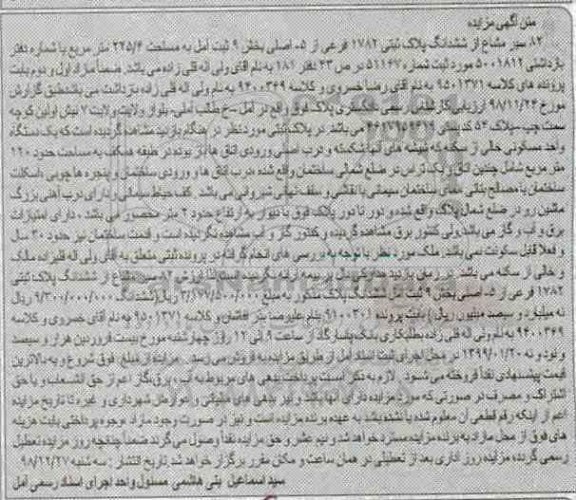 متن آگهی مزایده
۸۲ سیر مشاع از ششدانگ پلاک ثبتی ۱۷۸۲ فرعی از ۵- اصلی بخش ۹ ثبت آمل به مساحت ۲۲۵/۴ متر مربع با شماره دفتر
بازداشتی ۵۰۰۱۸۱۲ مورد ثبت شماره ۵۱۱۶۷ در ص ۴۳ دفتر ۱۸۱ به نام آقای ولی اله قلی زاده می باشد. ضمنا مازاد اول و دوم بابت
پرونده های کلاسه ۹۵۰۱۳۷۱ به نام آقای رضا خسروی و کلاسه ۹۴۰۰۳۶۹ به نام ولی اله قلی زاده بازداشت می باشد طبق گزارش
مورخ ۹۸/۱۱/۲۴ ارزیابی کارشناس رسمی دادگستری پلاک فوق واقع در آمل -خ طالب آملی- بلوار ولایت ولایت ۷ نبش اولین کوچه
سمت چپ -پلاک ۵۴ کد پستی می باشد. در پلاک ثبتی مورد نظر در هنگام بازدید مشاهده گردیده است که یک دستگاه
واحد مسکونی خالی از سکنه که شیشه های آنها شکسته و درب اصلی ورودی اتاق ها باز بوده در طبقه همکف به مساحت حدود ۱۲۰
متر مربع شامل چندین اتاق و یک تراس در ضلع شمالی ساختمان واقع شده، درب اتاق ها و ورودی ساختمان و پنجره ها چوبی، اسکلت
ساختمان با مصالح بنائی نمای ساختمان سیمانی با نقاشی و سقف شیروانی می باشد. کف حیاط سیمانی و دارای درب آهنی بزرگ
ماشین رو در ضلع شمال پلاک واقع شده و دور تا دور پلاک فوق با دیوار به ارتفاع حدود ۲ متر محصور می باشد. دارای امتیازات
برق و آب و گاز می باشد ولی کنتور برق مشاهده نگردیده و کنتور گاز و آب مشاهده نگردیده است و قدمت ساختمان نیز حدود ۳۰ سال
و فعلا قابل سکونت نمی باشد. ملک مورد نظر با توجه به بررسی های انجام گرفته در پرونده ثبتی متعلق به آقای ولی اله قلیزاده مالک
و خالی از سکنه می باشد. در زمان بازدید هیچگونه بیمه ارائه نگردید ارزش ۸۲ سیر مشاع از ششدانگ پلاک ثبتی
۱۷۸۲ فرعی از ۵- اصلی بخش ۹ ثبت آمل ششدانگ پلاک مذکور به مبلغ ۳/۱۷۷/۵۰۰/۰۰۰ ریال (ششدانگ ۹/۳۰۰/۰۰۰/۰۰۰ ریال
نه میلیارد و سیصد میلیون ریال) بابت پرونده ۹۱۰۰۳۰۱ بنام علیرضا و کلاسه ۹۵۰۱۳۷۱ به نام آقای خسروی و کلاسه
۹۴۰۰۳۶۹ به نام ولی اله قلی زاده بطلبکاری بانک پاسارگاد از ساعت ۹ الی ۱۲ روز چهارشنبه مورخ بیست فروردین هزار و سیصد
و نود و نه ۱۳۹۹/۰۱/۲۰ در محل اجرای ثبت اسناد آمل از طریق مزایده به فروش می رسد. مزایده از مبلغ فوق شروع و به بالاترین
قیمت پیشنهادی نقدا فروخته می شود. لازم به ذکر است پرداخت بدهی های مربوط به آب، برق، گاز اعم از حق انشعاب و یا حق
اشتراک و مصرف در صورتی که مورد مزایده دارای آنها باشد و نیز بدهی های مالیاتی و عوارض شهرداری و غیره تا تاریخ مزایده
اعم از اینکه رقم قطعی آن معلوم شده یا نشده باشد به عهده برنده مزایده است و نیز در صورت وجود مازاد، وجوه پرداختی بابت هزینه
های فوق از محل مازاد به برنده مزایده مسترد خواهد شد و نیم عشر و حق مزایده نقدا وصول می گردد ضمنا چنانچه روز مزایده تعطیل
رسمی گردد، مزایده روز اداری بعد از تعطیلی در همان ساعت و مکان مقرر برگزار خواهد شد تاریخ انتشار : سه شنبه ۹۸/۱۲/۲۷
سید اسماعیل بنی هاشمی مسئول واحد اجرای اسناد رسمی آمل